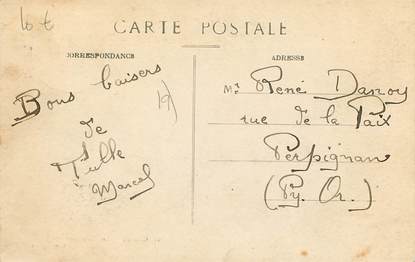 10 €
CARTE POSTALE
CORRESPONDANCE
Bons baisers
de
Tulle
Marcel
19)
ADRESSE
Mr René Danoy
rue de la Paix
Perpignan
(Py. Or.)